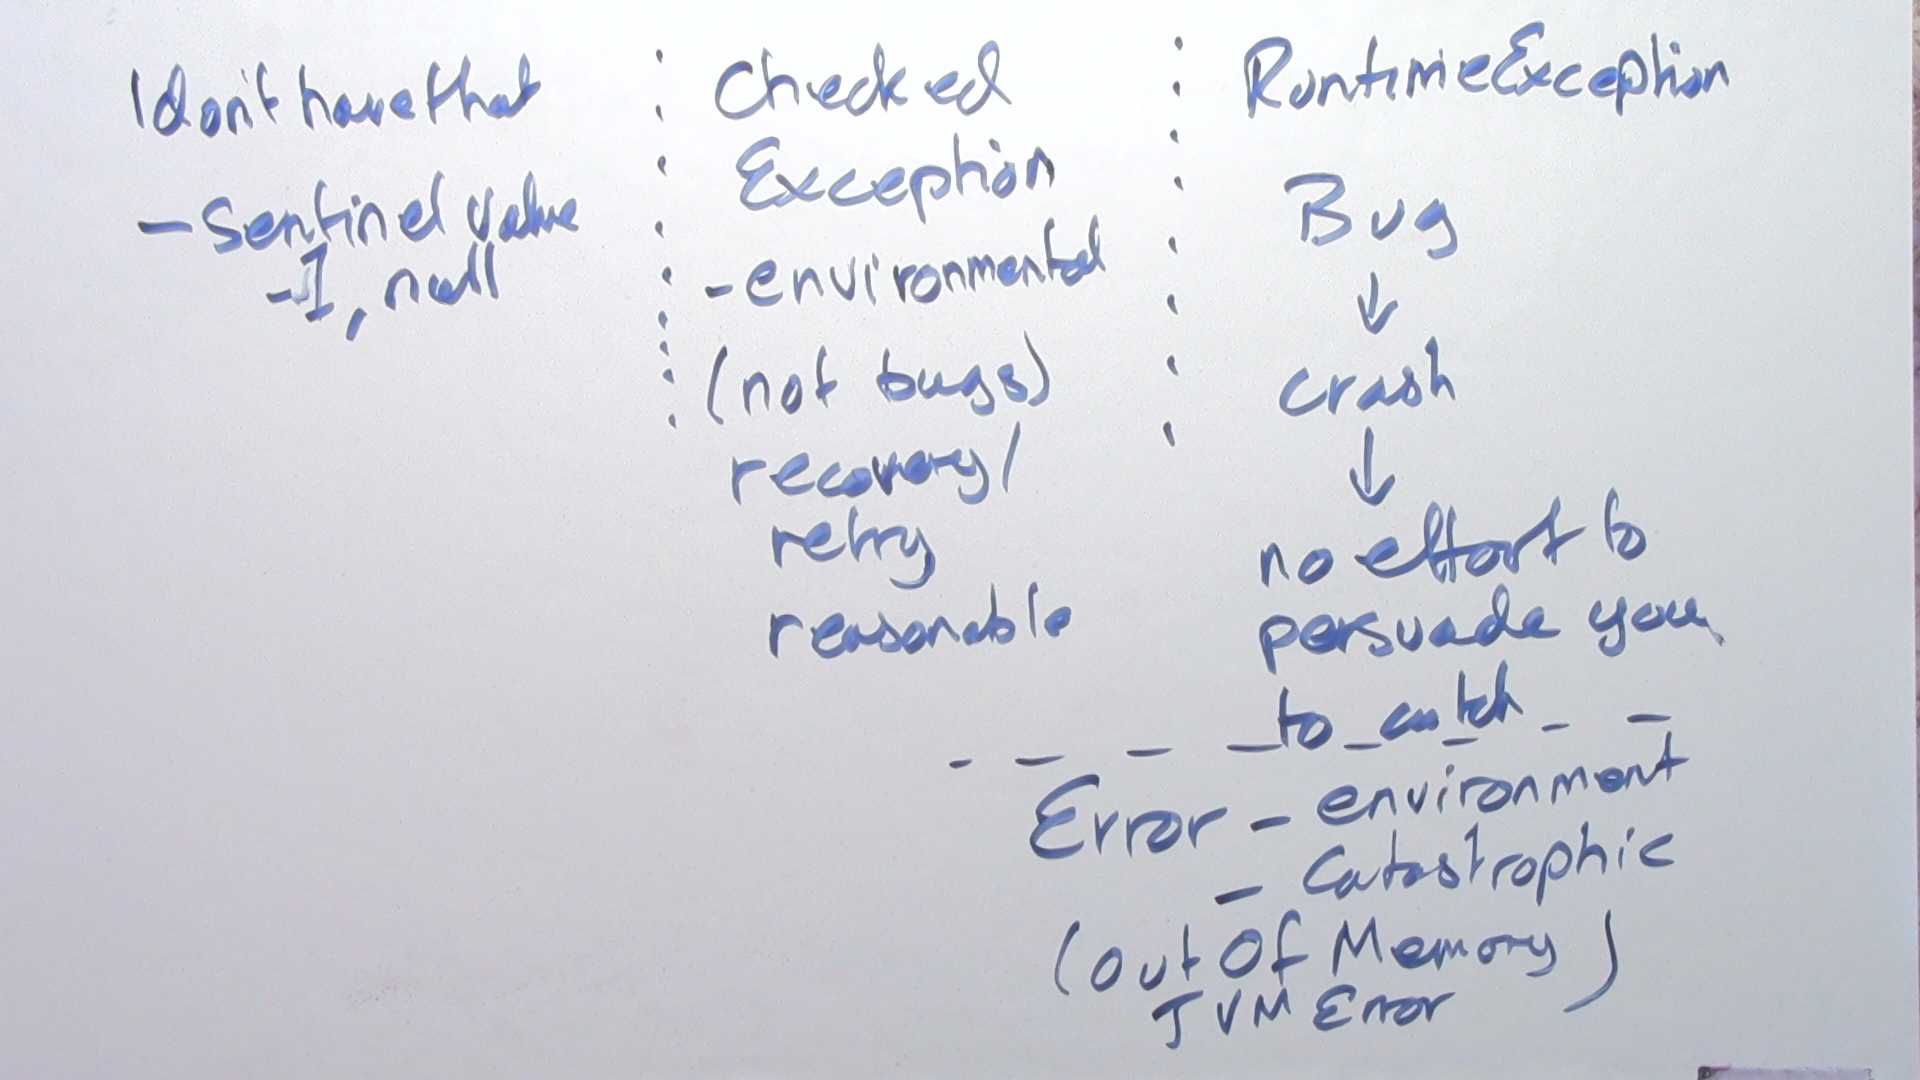 I don't have that
- Sentinel value
-1, null
Checked
Exception
- environmental
(not bugs)
recovery/
retry
reasonable
RuntimeException
Bug
↓
crash
↓
no effort to
persuade you
to catch
Error - environment
- Catastrophic
(Out Of Memory)
JVM Error